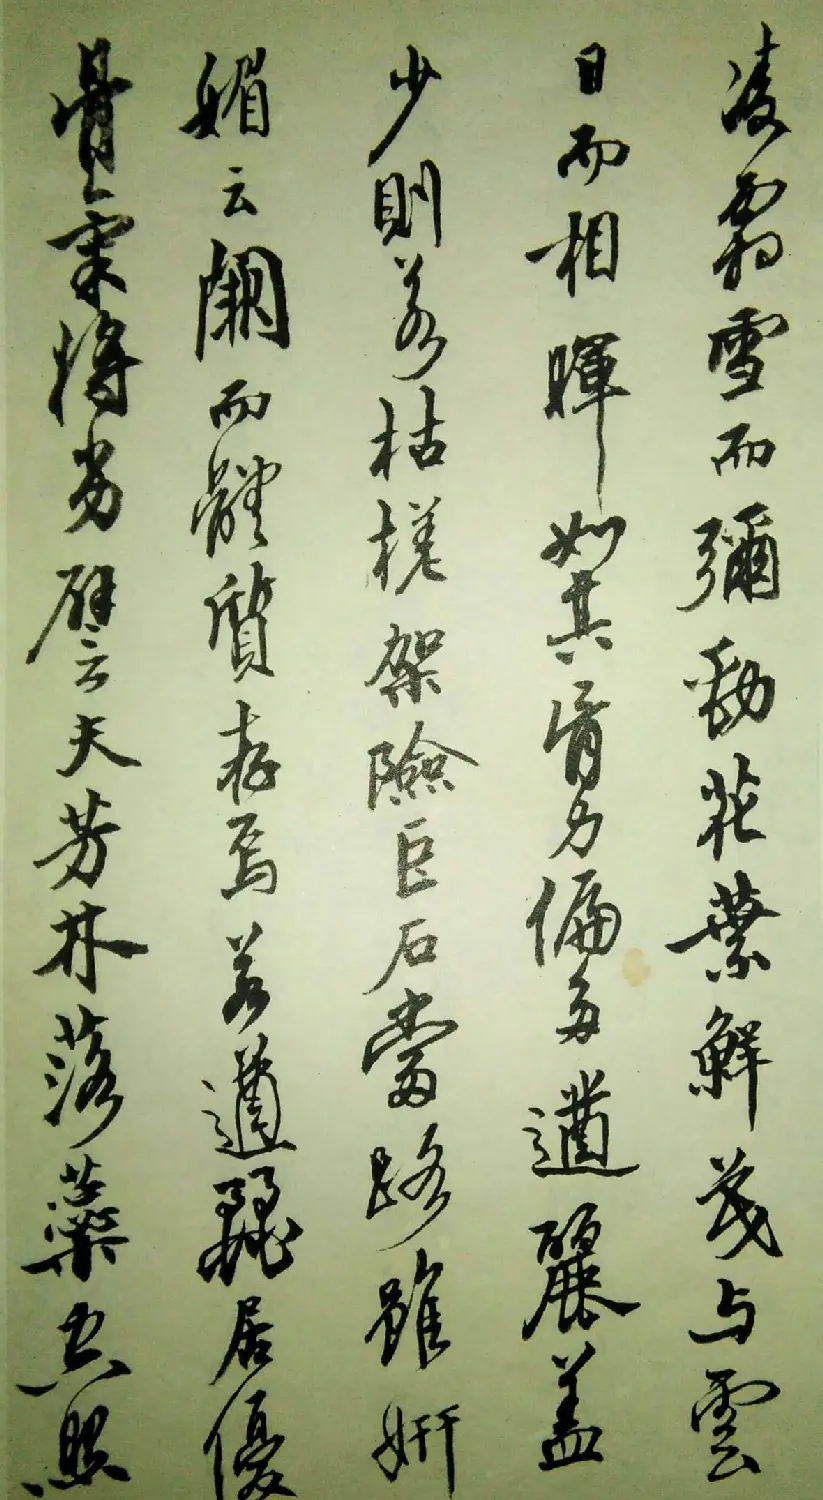 凌霜雪而彌勁花葉鮮茂与雲
日而相暉如其骨力偏多遒麗盖
少則若枯槎架險巨石當路雖妍
媚云闕而體質存焉若遒麗居優
骨氣將劣譬云夫芳林落蘂空照